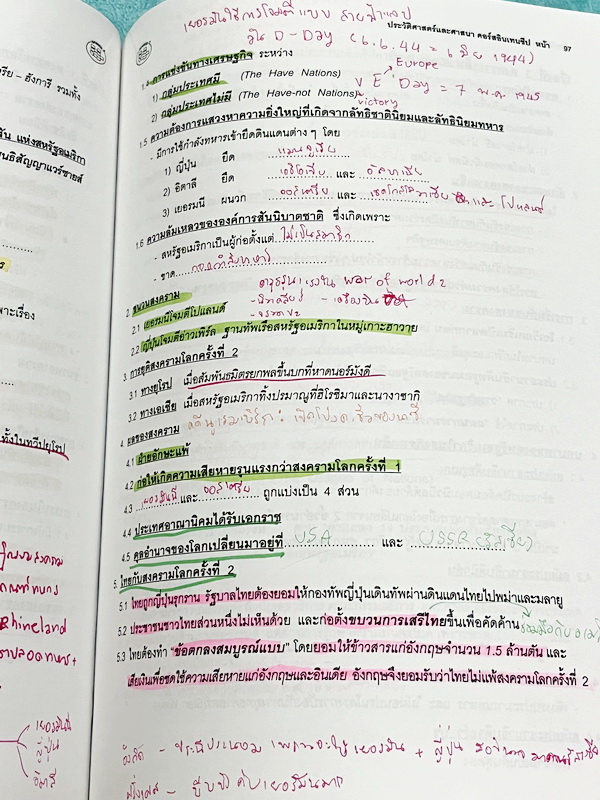 เยอรมันใช้การโจมตีแบบ สายฟ้าแลบ
ประวัติศาสตร์และศาสนา คอร์สอินเทนซีป หน้า 97
วัน D-Day (6.6.44 = 6 มิย 1944)
1.4 การแข่งขันทางเศรษฐกิจ ระหว่าง
Europe
1) กลุ่มประเทศมี (The Have Nations)
V E Day = 7 พ.ค. 1945
2) กลุ่มประเทศไม่มี (The Have-not Nations)
victory
1.5 ความต้องการแสวงหาความยิ่งใหญ่ที่เกิดจากลัทธิชาตินิยมและลัทธินิยมทหาร
- มีการใช้กำลังทหารเข้ายึดดินแดนต่าง ๆ โดย
1) ญี่ปุ่น ยึด แมนจูเรีย
2) อิตาลี ยึด เอธิโอเปีย และ อัลบาเนีย
3) เยอรมนี ผนวก ออสเตรีย และ เชคโกสโลวาเกีย และ โปแลนด์
1.6 ความล้มเหลวขององค์การสันนิบาตชาติ ซึ่งเกิดเพราะ
- สหรัฐอเมริกาเป็นผู้ก่อตั้งแต่ ไม่เป็นสมาชิก
- ขาด กองกำลังทหาร
war of world 2
2. ชนวนสงคราม
2.1 เยอรมนีโจมตีโปแลนด์
2.2 ญี่ปุ่นโจมตีอ่าวเพิร์ล ฐานทัพเรือสหรัฐอเมริกาในหมู่เกาะฮาวาย
3. การยุติสงครามโลกครั้งที่ 2
3.1 ทางยุโรป เมื่อสัมพันธมิตรยกพลขึ้นบกที่หาดนอร์มังดี
3.2 ทางเอเชีย เมื่อสหรัฐอเมริกาทิ้งปรมาณูที่ฮิโรชิมาและนางาซากิ
4. ผลของสงคราม
4.1 ฝ่ายอักษะแพ้
4.2 ก่อให้เกิดความเสียหายรุนแรงกว่าสงครามโลกครั้งที่ 1
4.3 เยอรมันนี และ ออสเตรีย ถูกแบ่งเป็น 4 ส่วน
4.4 ประเทศอาณานิคมได้รับเอกราช
4.5 ดุลอำนาจของโลกเปลี่ยนมาอยู่ที่ USA และ USSR รัสเซีย
5. ไทยกับสงครามโลกครั้งที่ 2
5.1 ไทยถูกญี่ปุ่นรุกราน รัฐบาลไทยต้องยอมให้กองทัพญี่ปุ่นเดินทัพผ่านดินแดนไทยไปพม่าและมลายู
5.2 ประชาชนชาวไทยส่วนหนึ่งไม่เห็นด้วย และก่อตั้งขบวนการเสรีไทยขึ้นเพื่อคัดค้าน
5.3 ไทยต้องทำ "ข้อตกลงสมบูรณ์แบบ" โดยยอมให้ข้าวสารแก่อังกฤษจำนวน 1.5 ล้านตัน และ
เสียเงินเพื่อชดใช้ความเสียหายแก่อังกฤษและอินเดีย อังกฤษจึงยอมรับว่าไทยไม่แพ้สงครามโลกครั้งที่ 2
อังกฤษ - ประนีประนอม
ฝรั่งเศส - บีบบังคับเยอรมันมาก
รีย – ฮังการี รวมทั้ง
แห่งสหรัฐอเมริกา
นธิสัญญาแวร์ซายส์
เพราะเรื่อง
ทั้งในทวีปยุโรป
Rhineland
เยอรมันนี
ญี่ปุ่น
อิตาลี